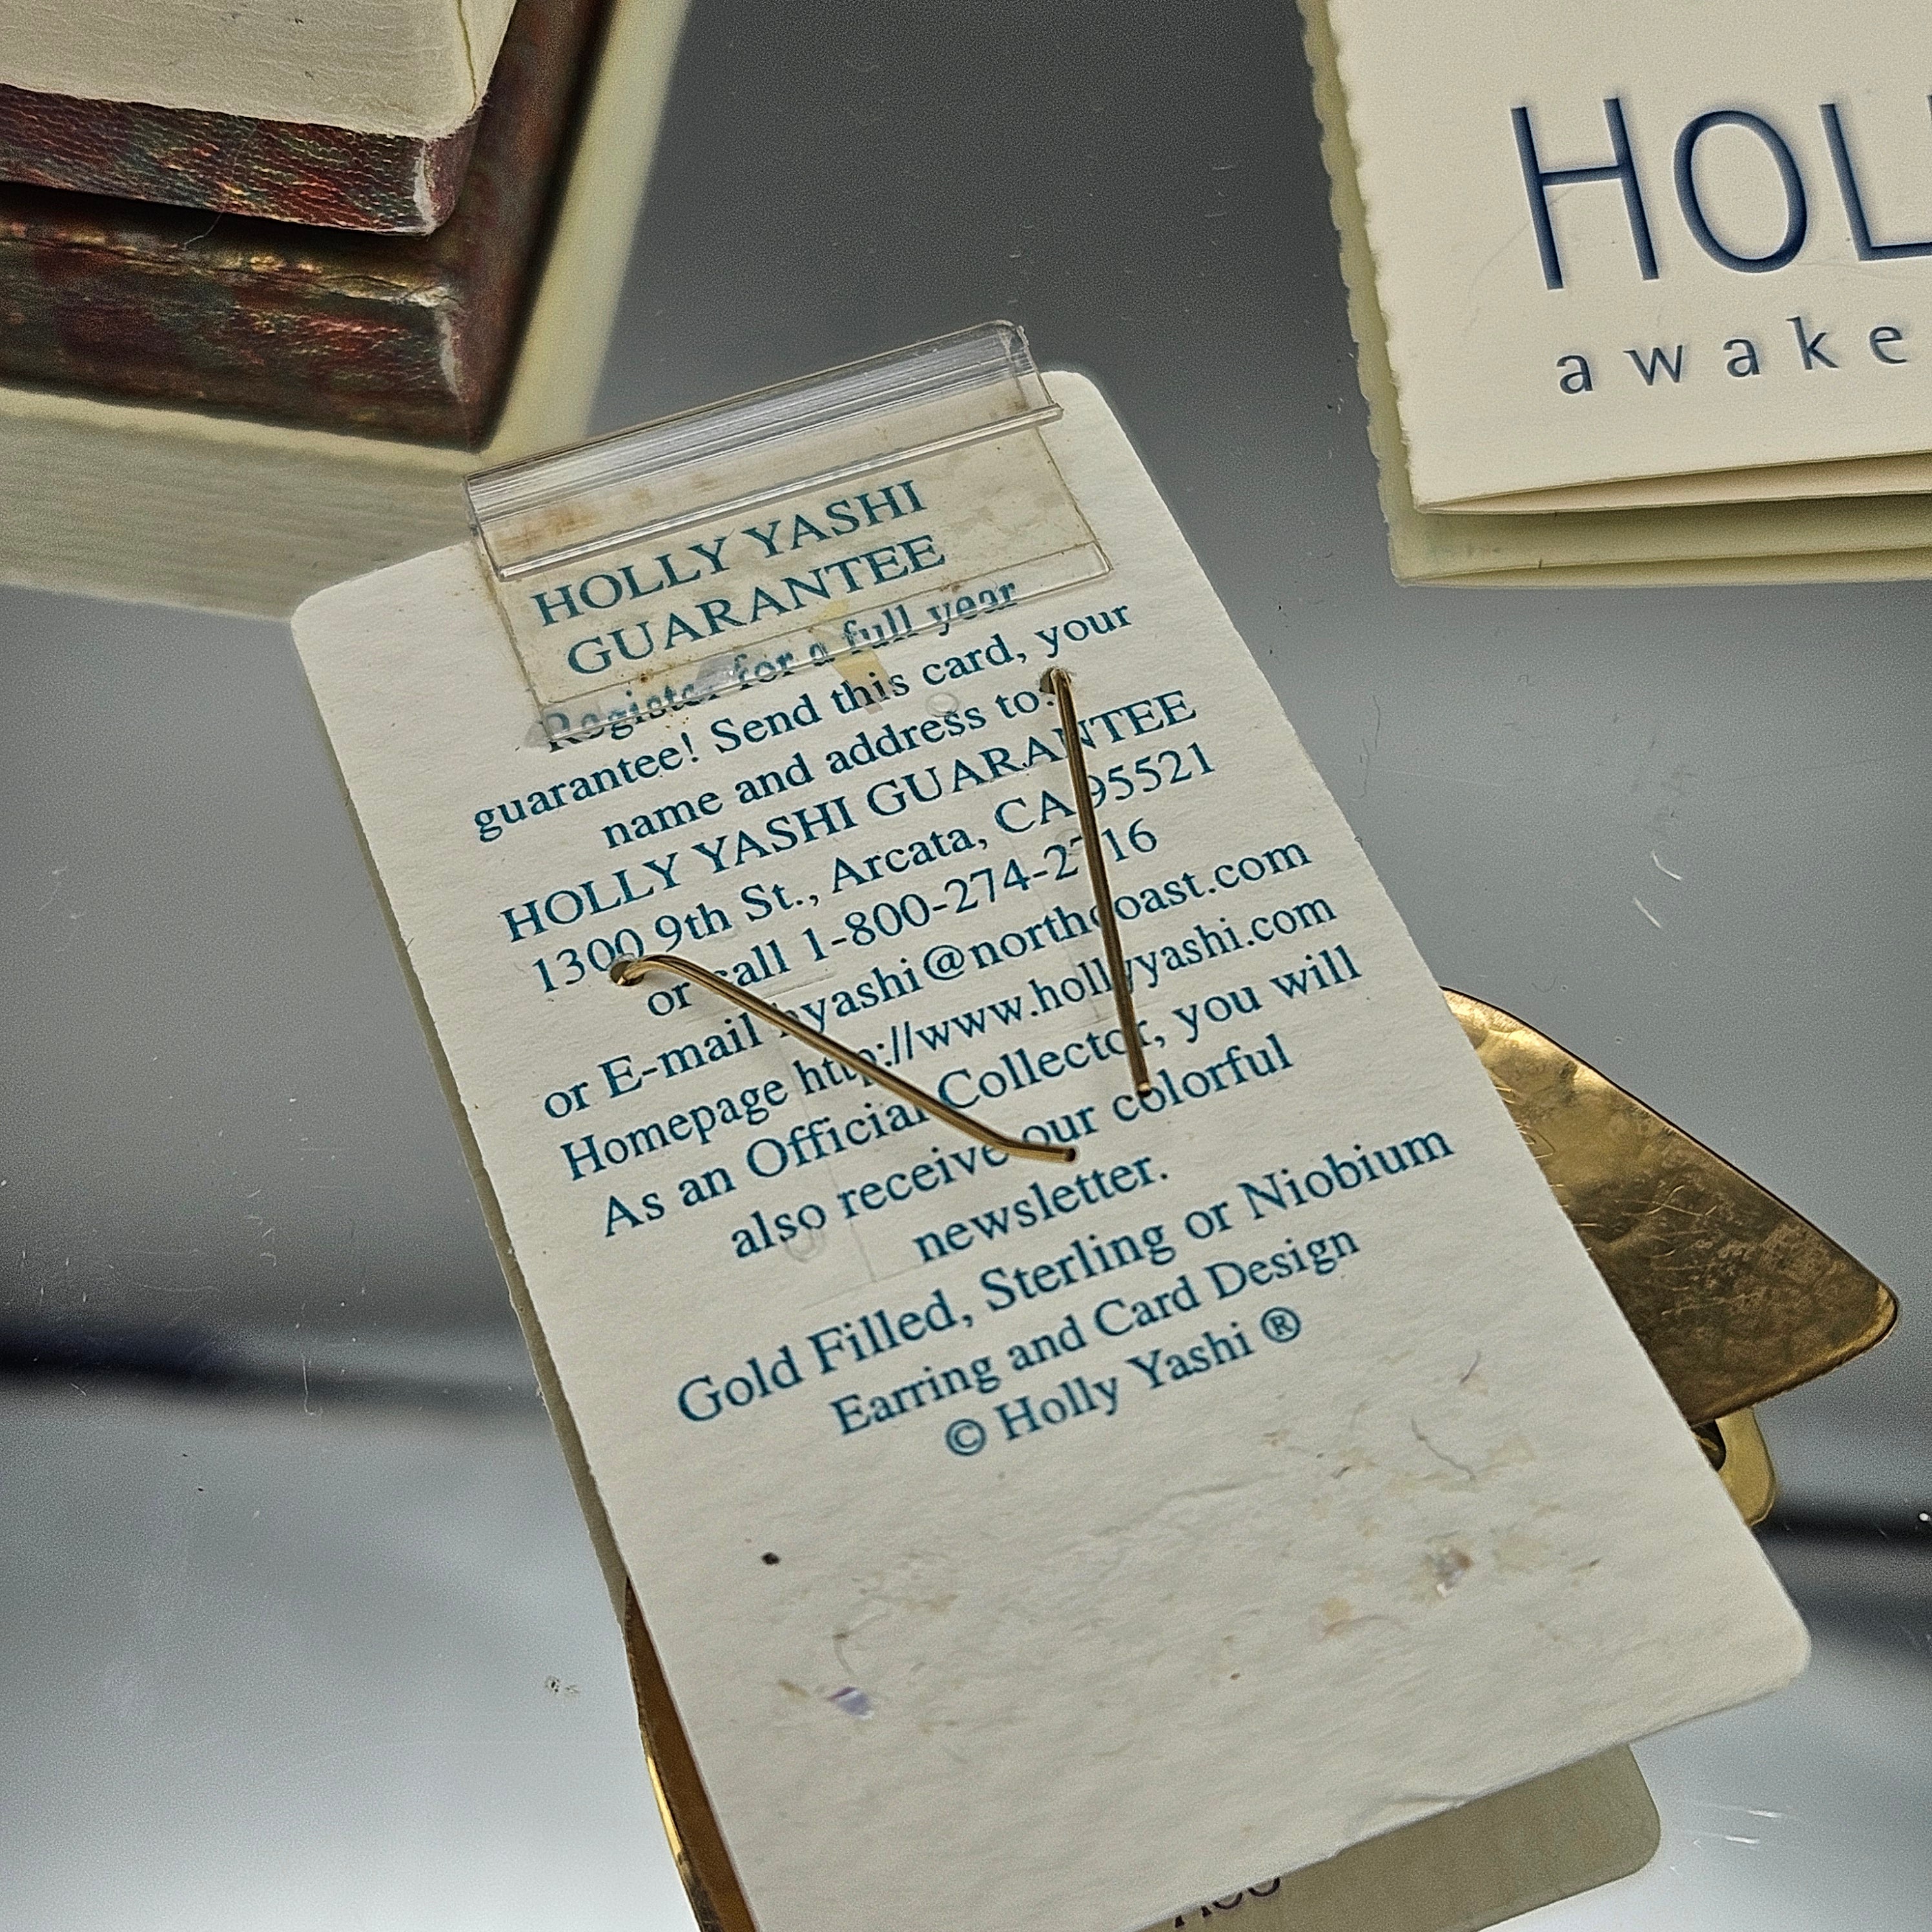 HOL
awake
HOLLY YASHI
GUARANTEE
Register for a full year
guarantee! Send this card, your
name and address to:
HOLLY YASHI GUARANTEE
1300 9th St., Arcata, CA 95521
or call
or E-mail hyashi@northcoast.com
Homepage http://www.hollyyashi.com
As an Official Collector, you will
also receive our colorful
newsletter.
Gold Filled, Sterling or Niobium
Earring and Card Design
© Holly Yashi ®